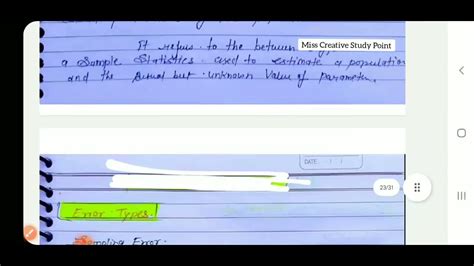 It refers to the between
Miss Creative Study Point
a Sample Statistics used to estimate a population
and the actual but unknown value of parameter.
DATE
23/31
Error Types.
Sampling Error: